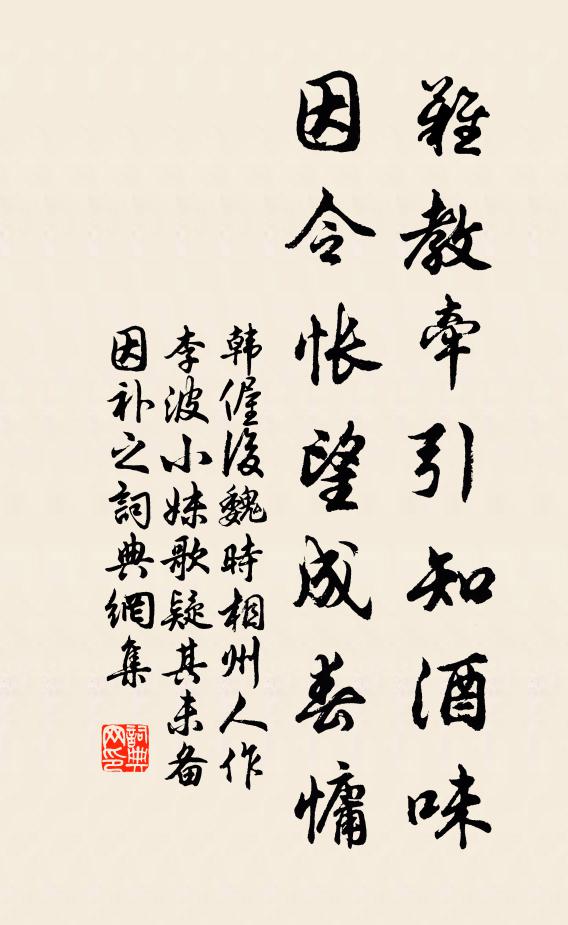 難教牽引知酒味
因令怅望成春慵
韩偓後魏時相州人作
李波小妹歌疑其未备
因补之詞典網集
詞典
网印